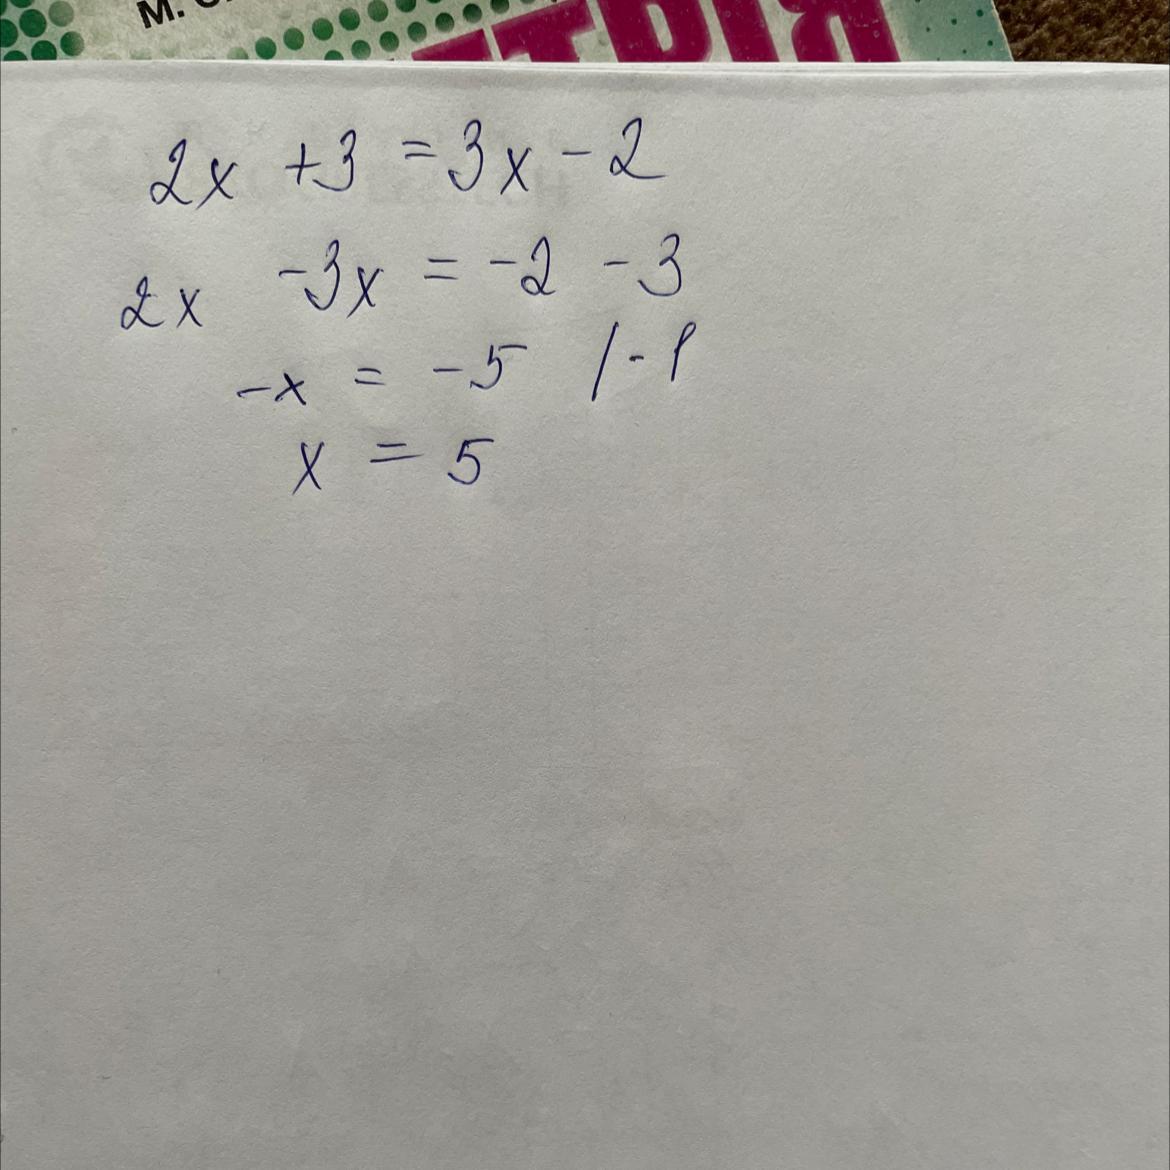 М.
ЕТРІЯ
2x + 3 = 3x - 2
2x - 3x = -2 - 3
-x = -5 /-1
x = 5